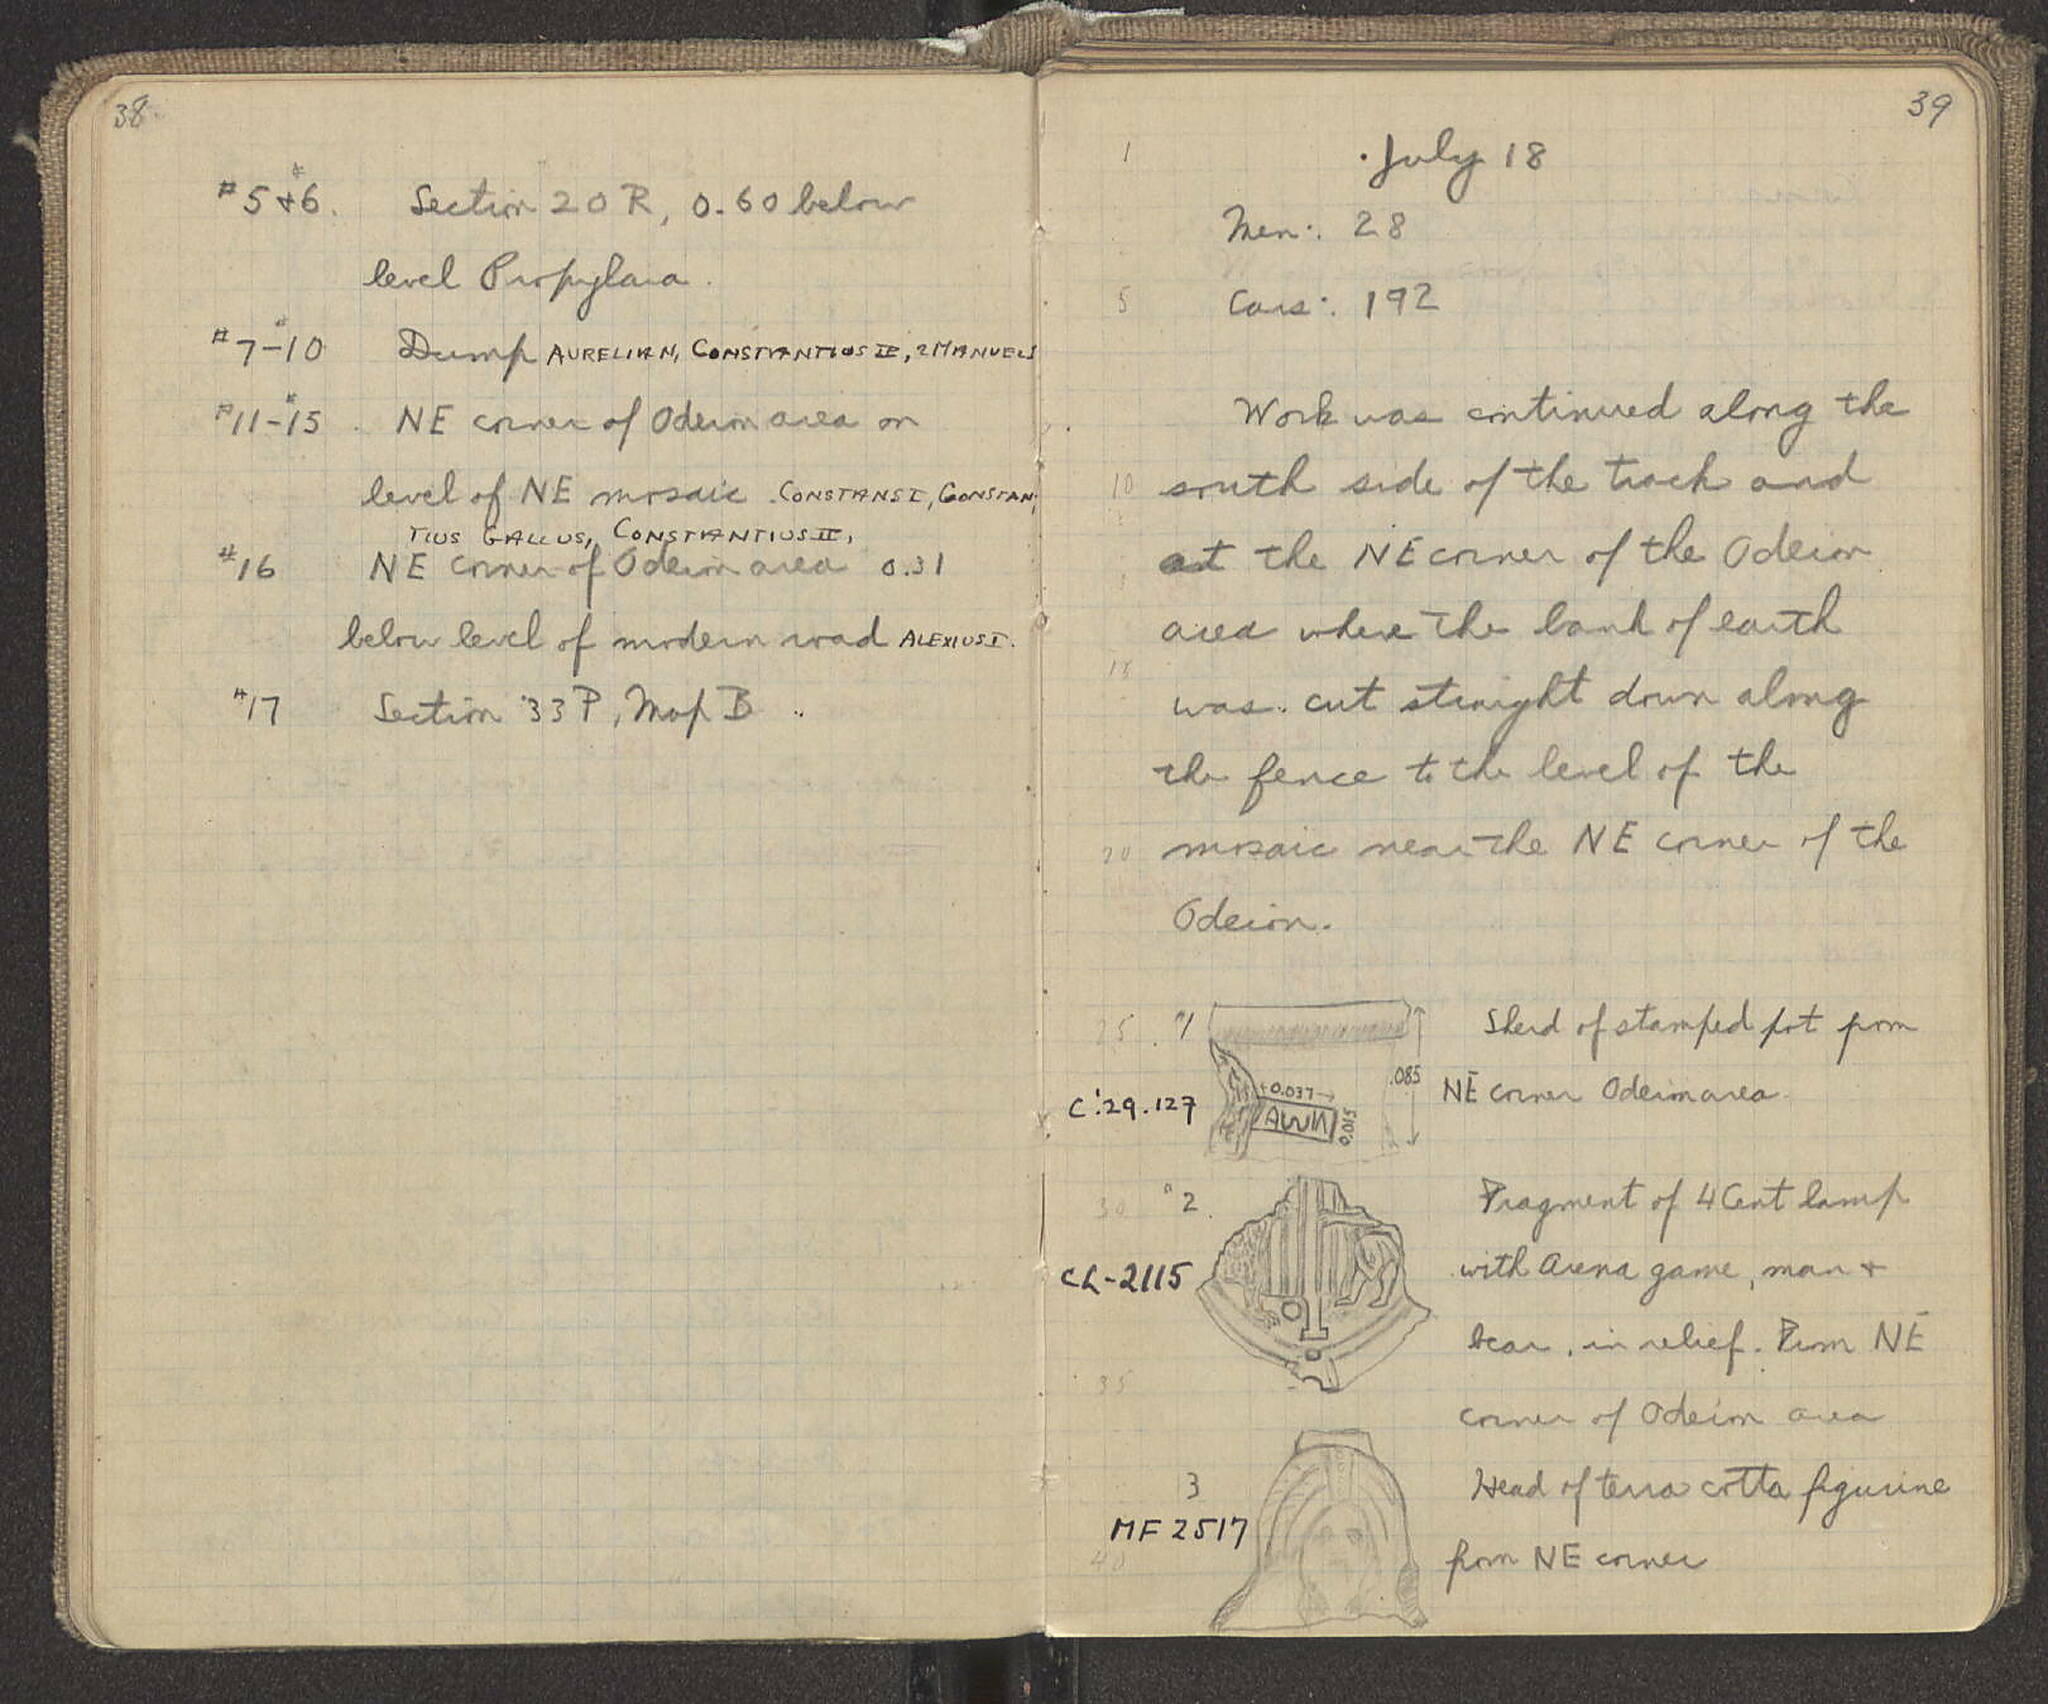 38
#5 & #6. Section 20 R, 0.60 below
level Propylaea.
#7-#10 Dump AURELIAN, CONSTANTIUS II, 2 MANUELS
#11-#15. NE corner of Odeion area on
level of NE mosaic. CONSTANS I, CONSTAN-
TIUS GALLUS, CONSTANTIUS II,
#16 NE corner of Odeion area 0.31
below level of modern road ALEXIUS I.
#17 Section 33 P, Map B
39
1 July 18
Men: 28
5 Cars: 192
Work was continued along the
10 south side of the track and
at the NE corner of the Odeion
area where the bank of earth
15 was cut straight down along
the fence to the level of the
20 mosaic near the NE corner of the
Odeion.
25 #1 Sherd of stamped pot from
.085
0.037
C:29.127 NE corner Odeion area
0.015
30 #2. Fragment of 4 Cent lamp
CL-2115 with Arena game, man &
bear, in relief. From NE
35 corner of Odeion area
3 Head of terra cotta figurine
MF 2517
40 from NE corner